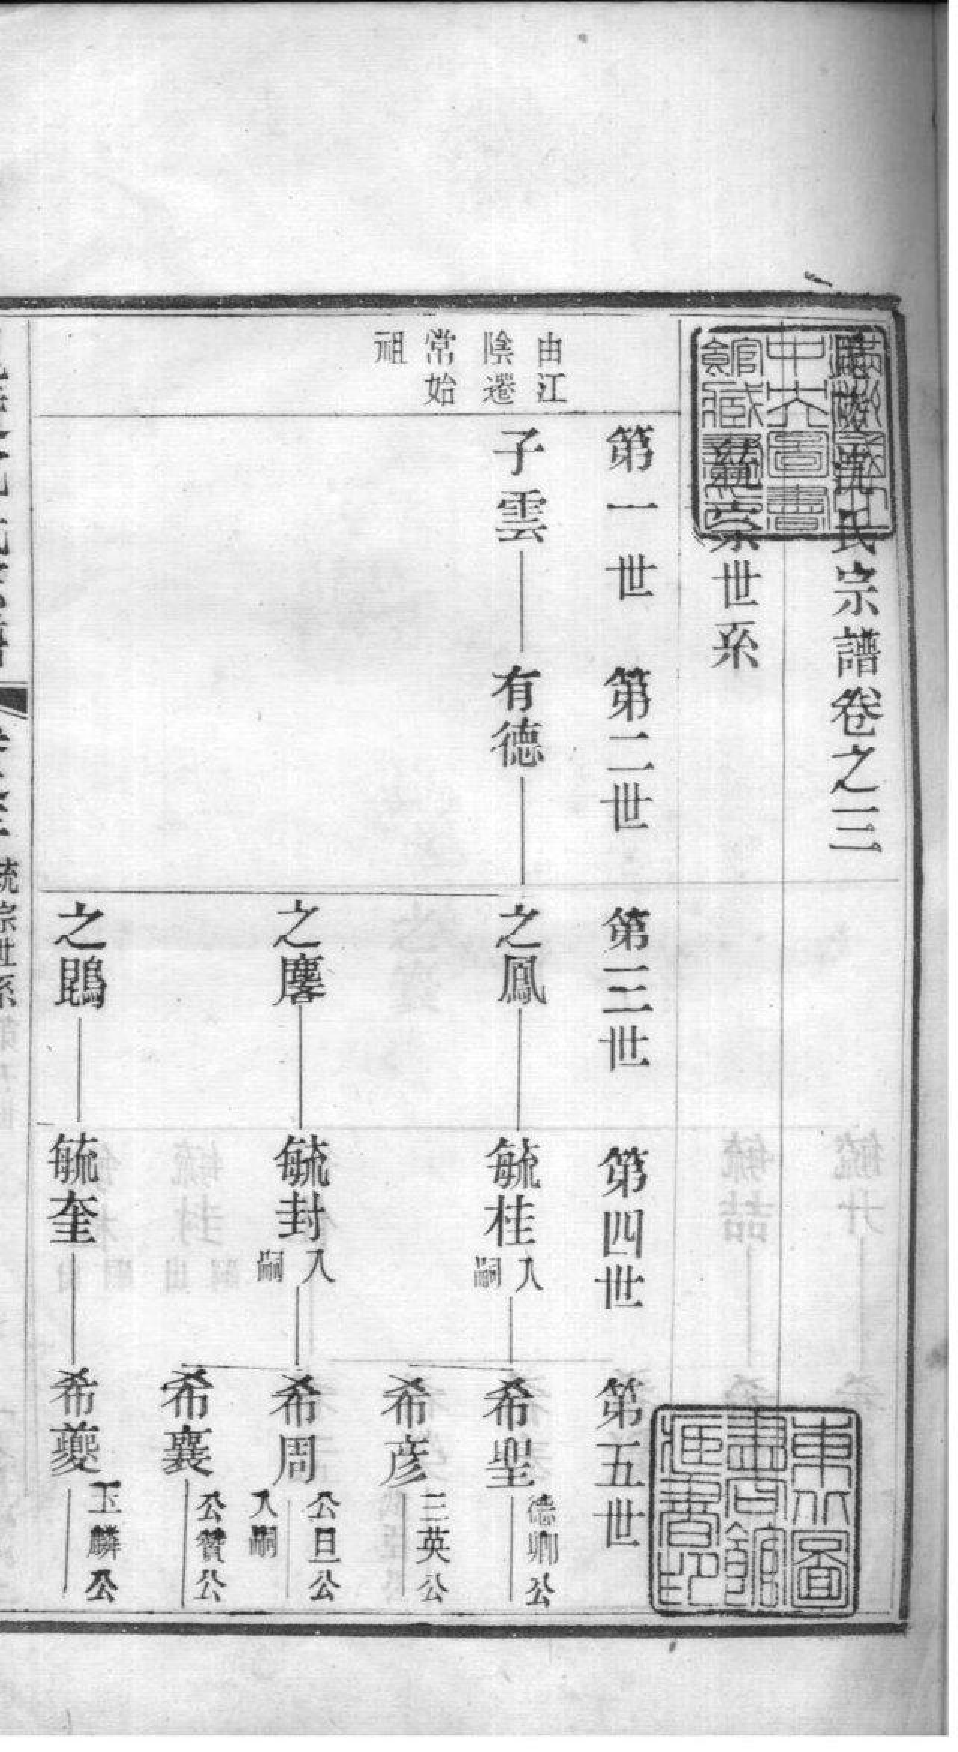 氏宗譜卷之三
統宗世系
由江
陰遷
常始
祖
第一世
第二世
第三世
第四世
第五世
子雲
有德
之鳳
毓桂
入
嗣
希聖
德卿公
希彥
三英公
之麐
毓封
入
嗣
希周
公旦公
入嗣
希襄
公贊公
之鵾
毓奎
希夔
玉麟公
統宗世系